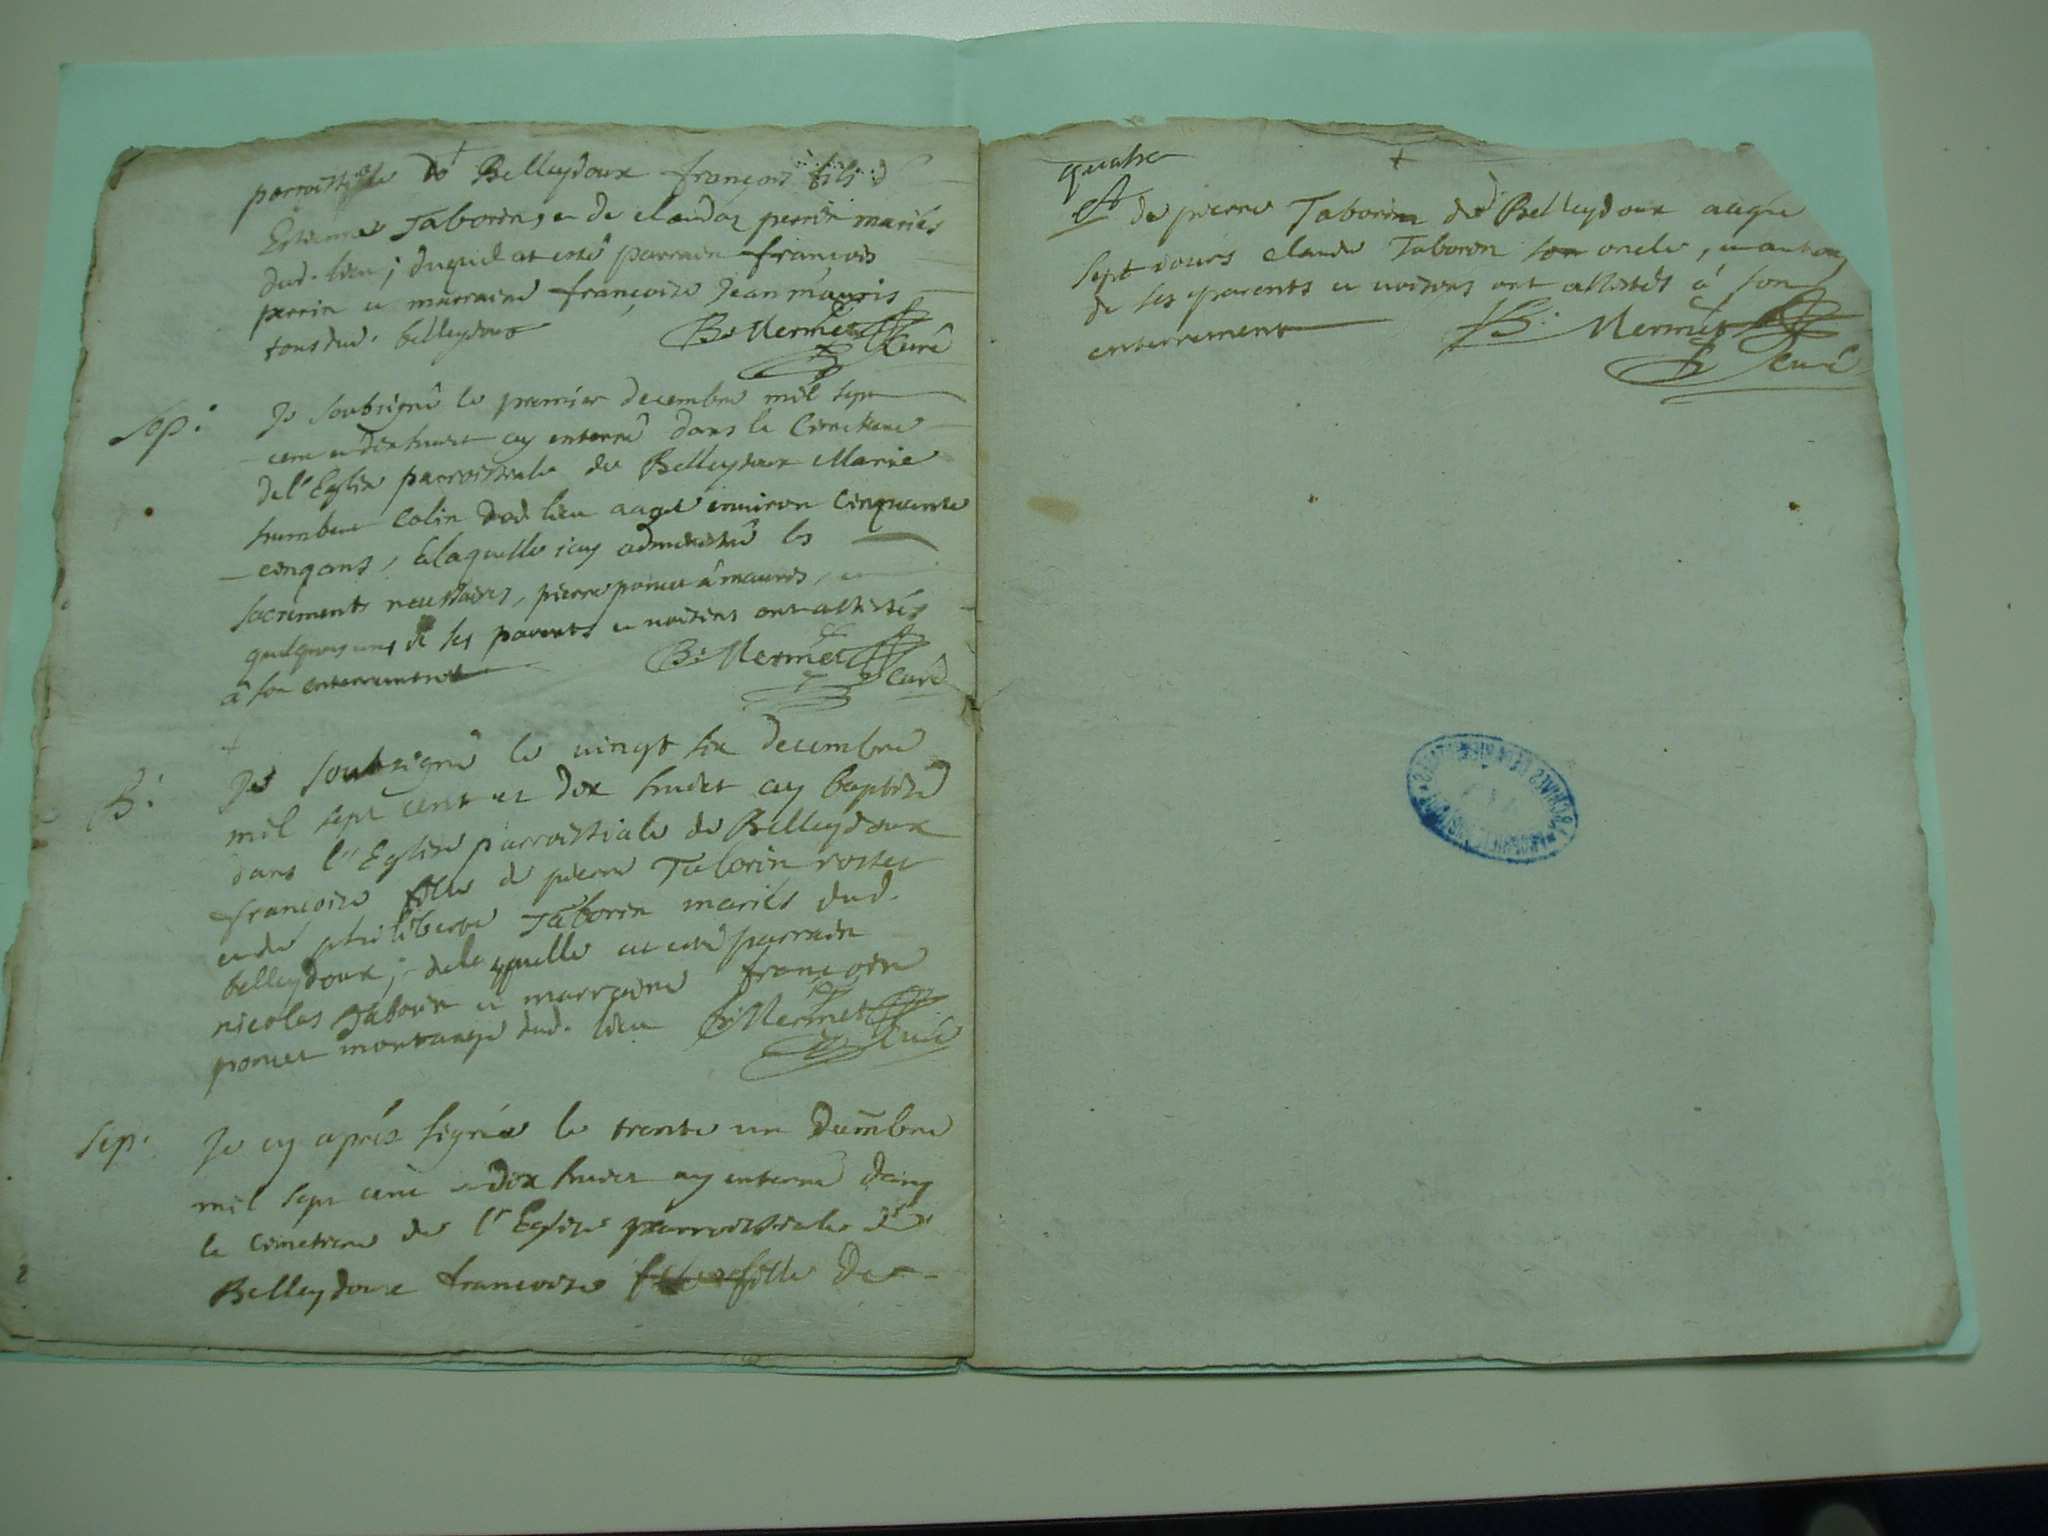 parroissialle de Belleydoux françois fils d
Estienne Taborin, et de claudaz perrin mariés
dud. lieu; duquel at esté parrain françois
perrin et marraine françoise Jeanmauris
tous dud. belleydoux B: Mermet
Curé
Sep: Je soubsigné le premier decembre mil sept
cent et dix huict ay enterré dans le Cimetiere
de l'Eglise parroissiale de Belleydoux Marie
humbert Colin dud. lieu aagée environ Cinquante
cinq ans, a laquelle j'ay administré les
sacrements necessaires, pierre poncet à mauris, et
quelques uns de ses parents et voisins ont assistés
à son enterrement B: Mermet
Curé
B: Je soubsigné le vingt six decembre
mil sept cent et dix huict ay baptisé
dans l'Eglise parroissiale de Belleydoux
françoise fille de pierre Taborin rosset
et de philiberte Taborin mariés dud.
belleydoux; de laquelle at esté parrain
nicolas Taborin et marraine françoise
poncet montange dud. lieu B: Mermet
Curé
Sep: Je cy aprés signé le trente un decembre
mil sept cent et dix huict ay enterré dans
le cimetiere de l'Eglise parroissiale de
Belleydoux francoise fille de
quatre
de pierre Taborin de Belleydoux aagée
sept jours claude Taborin son oncle, et
de ses parents et voisins ont assistés à son
enterrement B: Mermet
Curé